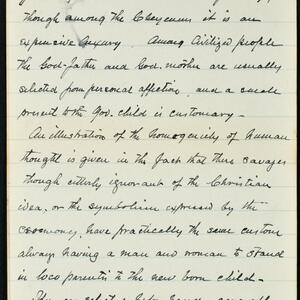 though among the Cheyennes it is an
expensive luxury. Among Civilized people
the God-father and God-mother are usually
selected from personal affection, and a small
present to the God-child is customary —
An illustration of the homogeneity of human
thought is given in the fact that these savages
though utterly ignorant of the Christian
idea, or the symbolism expressed by the
ceremony, have practically the same custom
always having a man and woman to stand
in loco parentis to the new born child —